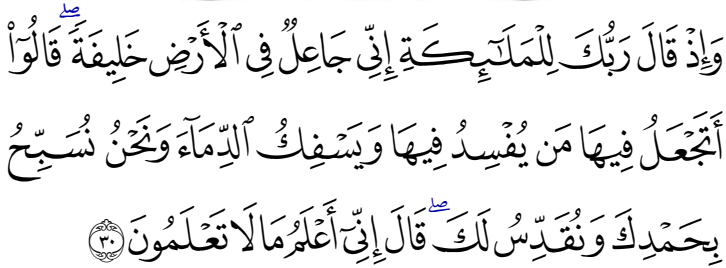 وَإِذْ قَالَ رَبُّكَ لِلْمَلَٰٓئِكَةِ إِنِّى جَاعِلٌ فِى ٱلْأَرْضِ خَلِيفَةً ۖ قَالُوٓا۟
أَتَجْعَلُ فِيهَا مَن يُفْسِدُ فِيهَا وَيَسْفِكُ ٱلدِّمَآءَ وَنَحْنُ نُسَبِّحُ
بِحَمْدِكَ وَنُقَدِّسُ لَكَ ۖ قَالَ إِنِّىٓ أَعْلَمُ مَا لَا تَعْلَمُونَ ٣٠